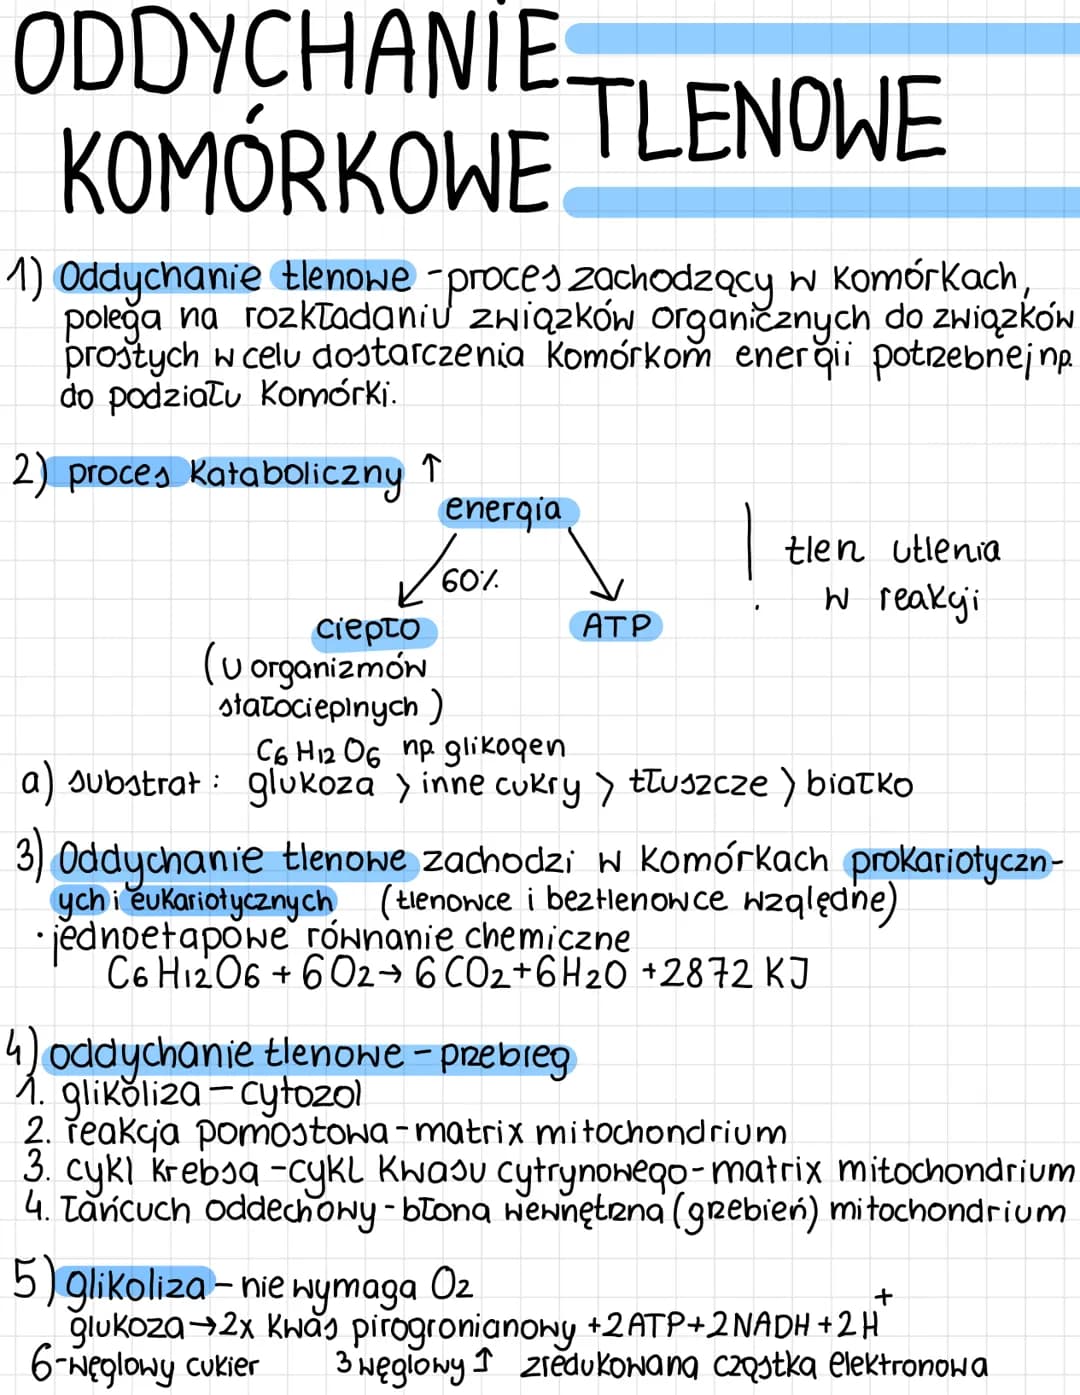 ODDYCHANIE
KOMÓRKOWE TLENOWE
1) Oddychanie tlenowe - proces zachodzący w komórkach,
polega na rozkładaniu związków organicznych do związków
prostych w celu dostarczenia komórkom energii potrzebnej np.
do podziału komórki.
2) proces kataboliczny ↑
energia
60%
ciepło
ATP
(u organizmów
stałocieplnych)
tlen utlenia
w reakcji
C6 H12 O6 np. glikogen
a) substrat: glukoza > inne cukry > tłuszcze > białko
3) Oddychanie tlenowe zachodzi w komórkach prokariotyczn-
ych i eukariotycznych (tlenowce i beztlenowce względne)
· jednoetapowe równanie chemiczne
C6H12O6 + 6O2 → 6CO2 + 6H2O + 2872 KJ
4) oddychanie tlenowe - przebieg
1. glikoliza - cytozol
2. reakcja pomostowa - matrix mitochondrium
3. cykl Krebsa - cykl kwasu cytrynowego - matrix mitochondrium
4. Łańcuch oddechowy - błona wewnętrzna (grzebień) mitochondrium
5) glikoliza - nie wymaga O2
glukoza → 2x kwas pirogronianowy + 2ATP + 2NADH + 2H+
6-węglowy cukier 3 węglowy ↑ zredukowana cząstka elektronowa